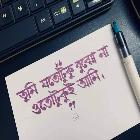 "
তুমি যতোটুকু বুঝো না
ওতোটুকুই আমি।
"